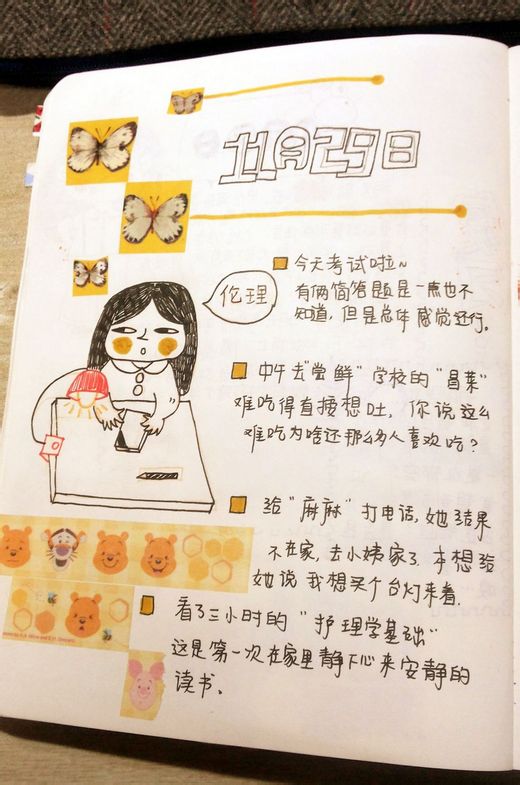 11月29日
伦理
今天考试啦~
有俩简答题是一点也不
知道,但是总体感觉还行。
中午去"尝鲜"学校的"冒菜"
难吃得直接想吐,你说这么
难吃为啥还那么多人喜欢吃?
给"麻麻"打电话,她结果
不在家,去小姨家了.本想给
她说我想买个台灯来着.
看了三小时的"护理学基础"
这是第一次在家里静下心来安静的
读书。